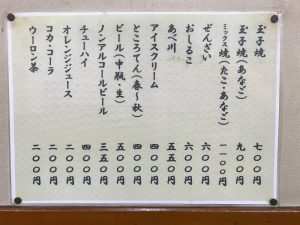 玉子焼 七〇〇円
玉子焼(あなご) 九〇〇円
ミックス焼(たこ・あなご) 一一〇〇円
ぜんざい 六〇〇円
おしるこ 六〇〇円
あべ川 五五〇円
アイスクリーム 四〇〇円
ところてん(春〜秋) 四〇〇円
ビール(中瓶・生) 五〇〇円
ノンアルコールビール 三五〇円
チューハイ 四〇〇円
オレンジジュース 二〇〇円
コカ・コーラ 二〇〇円
ウーロン茶 二〇〇円